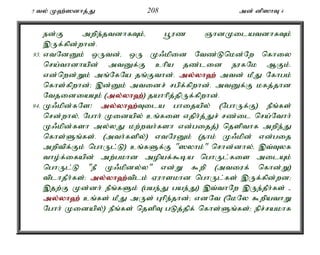 5 வல் முஹ்ஸனாத்து 208 அன் னிஸாவு 4
நன்கு அறிந்தவனாகவும், பூரண ஞானமுடையவனாகவும்
இருக்கின்றான்.
93. எவனேனும் ஒருவன், ஒரு முஃமினை வேண்டுமென்றே கொலை
செய்வானாயின் அவனுக்கு உரிய தண்டனை நரகமே ஆகும்.
என்றென்றும் அங்கேயே தங்குவான். அல்லாஹ் அவன் மீது கோபம்
கொள்கிறான்; இன்னும் அவனைச் சபிக்கிறான். அவனுக்கு மகத்தான
வேதனையையும் (அல்லாஹ்) தயாரித்திருக்கிறான்.
94. முஃமின்களே! அல்லாஹ்வுடைய பாதையில் (போருக்கு) நீங்கள்
சென்றால், போர் முனையில் உங்களை எதிர்த்துச் சண்டை செய்வோர்
முஃமின்களா அல்லது மற்றவர்களா என்பதைத்) தெளிவாக அறிந்து
கொள்ளுங்கள். (அவர்களில்) எவரேனும் (தாம் முஃமின் என்பதை
அறிவிக்கும் பொருட்டு) உங்களுக்கு "ஸலாம்" சொன்னால், இவ்வுலக
வாழ்க்கையின் அற்பமான அழியக்கூடிய பொருட்களை அடையும்
பொருட்டு "நீ முஃமினல்ல" என்று கூறி (அவரைக் கொன்று)
விடாதீர்கள்; அல்லாஹ்விடம் ஏராளமான பொருட்கள் இருக்கின்றன;
இதற்கு முன்னர் நீங்களும் (பயந்து பயந்து) இவ்வாறே இருந்தீர்கள் -
அல்லாஹ் உங்கள் மீது அருள் புரிந்தான்; எனவே (மேலே கூறியவாறு
போர் முனையில்) நீங்கள் தெளிவு படுத்திக் கொள்ளுங்கள்; நிச்சயமாக